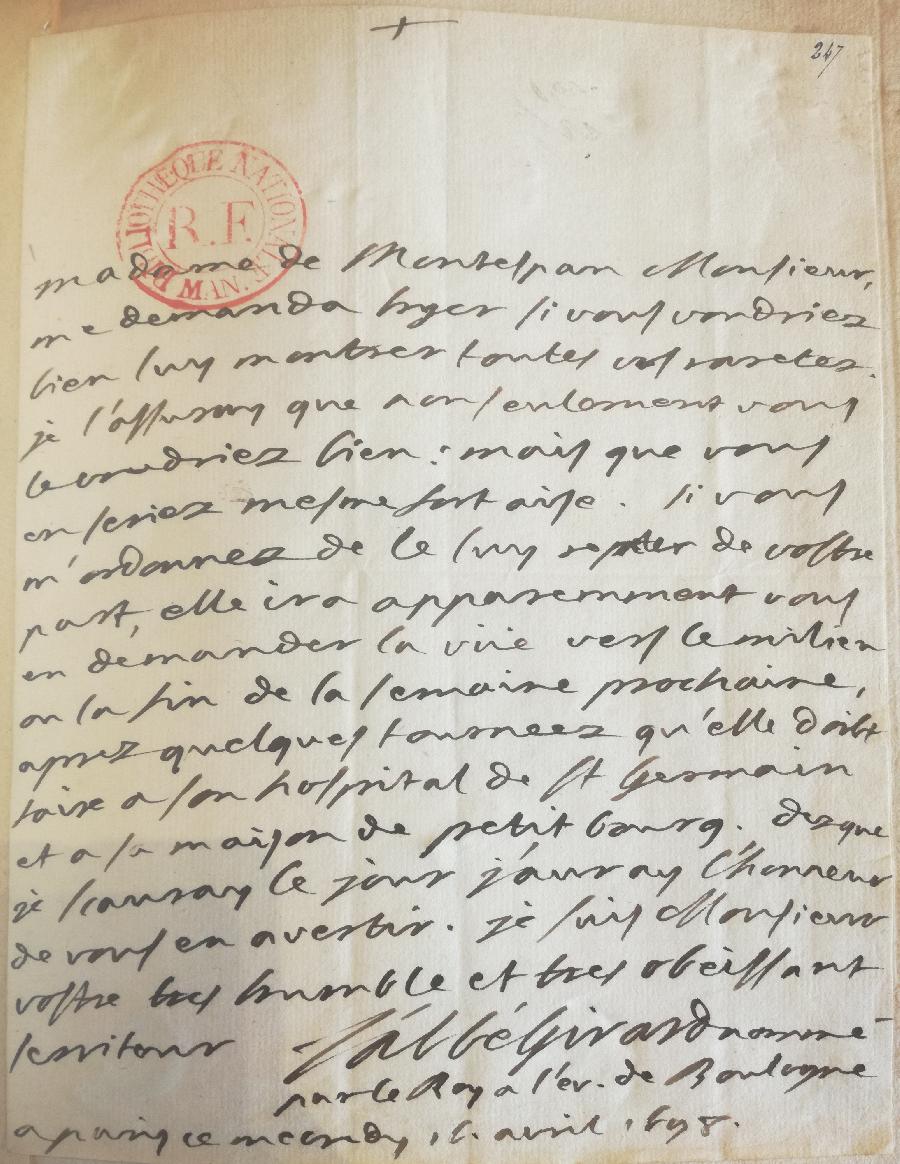 247
BIBLIOTHEQUE NATIONALE
R.F.
MAN.
madame de Montespan Monsieur,
me demanda hyer si vous voudriez
bien luy montrer toutes vos raretez.
je l'assuray que non seulement vous
le voudriez bien : mais que vous
en seriez mesme fort aise. si vous
m'ordonnez de le luy de vostre
part, elle ira apparemment vous
en demander la vüe vers le milieu
ou la fin de la semaine prochaine,
aprez quelques tourneez qu'elle doibt
faire a son hospital de St Germain
et a sa maison de petit bourg. dez que
je scauray le jour j'auray l'honneur
de vous en avertir. je suis Monsieur
vostre tres humble et tres obeissant
serviteur l'abbé Girard nommé
par le Roy a l'ev. de Boulogne
a paris ce mecredy 16. avril 1698.